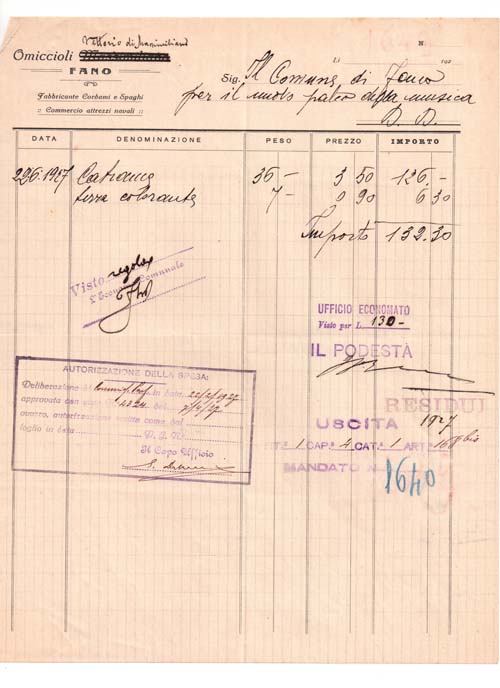 Vittorio di Massimiliano
Omiccioli
FANO
Fabbricante Cordami e Spaghi
:: Commercio attrezzi navali ::
N.
Li 190
Sig. Il Comune di Fano
per il nuovo palco della musica
D. D.
DATA DENOMINAZIONE PESO PREZZO IMPORTO
22.6.1927 Catrame 36 — 3 50 126.—
terra colorante 7 — 0 90 6 30
Importo 132.30
regolar
Visto
L'Economo Comunale
UFFICIO ECONOMATO
Visto per L. 130-
IL PODESTÀ
AUTORIZZAZIONE DELLA SPESA:
Deliberazione in data 22/6/1927
approvata con visto 2324 del
numero, autorizzazione unita come dal
foglio in data
Il Capo Ufficio
RESIDUI
USCITA 1927
TIT.° 1 CAP.° 4 CAT.° 1 ART.° 168 bis
MANDATO N.
1640